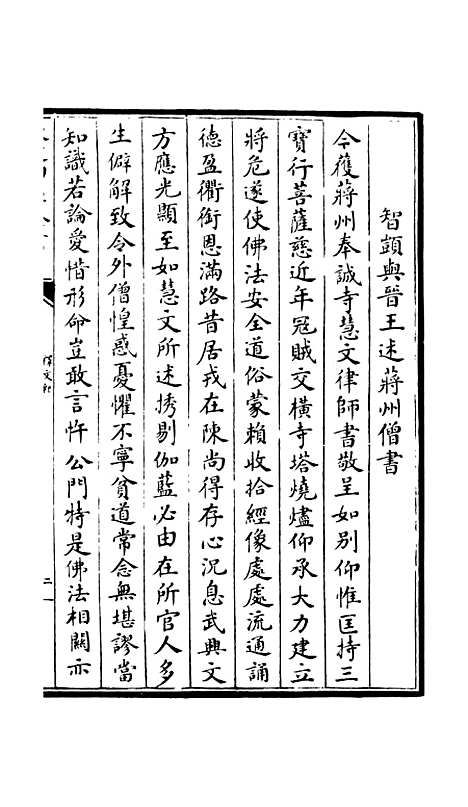 智顗與晉王述蔣州僧書
今獲蔣州奉誠寺慧文律師書敬呈如別仰惟匡持三
寶行菩薩慈近年冦賊交橫寺塔燒燼仰承大力建立
將危遂使佛法安全道俗蒙賴收拾經像處處流通誦
德盈衢銜恩滿路昔居戎在陳尚得存心沉息武興文
方應光顯至如慧文所述誘剔伽藍必由在所官人多
生僻解致令外僧惶惑憂懼不寧貧道常念無堪謬當
知識若論愛惜形命豈敢言忤公門特是佛法相關亦
釋文紀
二